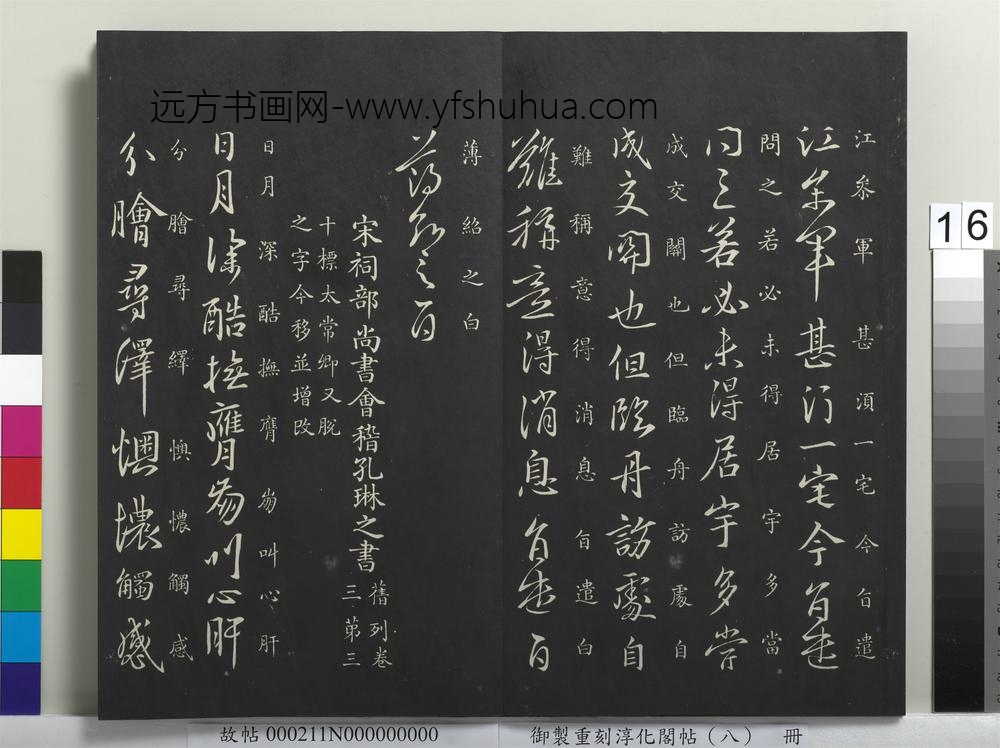 远方书画网-www.yfshuhua.com
江叅軍甚湏一宅今旨遣
江叅軍甚湏一宅今旨遣
問之若必未得居宇多當
問之若必未得居宇多當
成交關也但臨舟訪處自
成交關也但臨舟訪處自
難稱意得消息旨遣白
難稱意得消息旨遣白
薄紹之白
薄紹之白
宋祠部尚書會稽孔琳之書
舊列卷
三苐三
十標太常卿又脫
之字今移並增改
日月深酷撫膺崩叫心肝
日月深酷撫膺崩叫心肝
分膾尋繹懊憹觸感
分膾尋繹懊憹觸感
16
故帖 000211N000000000
御製重刻淳化閣帖（八） 冊